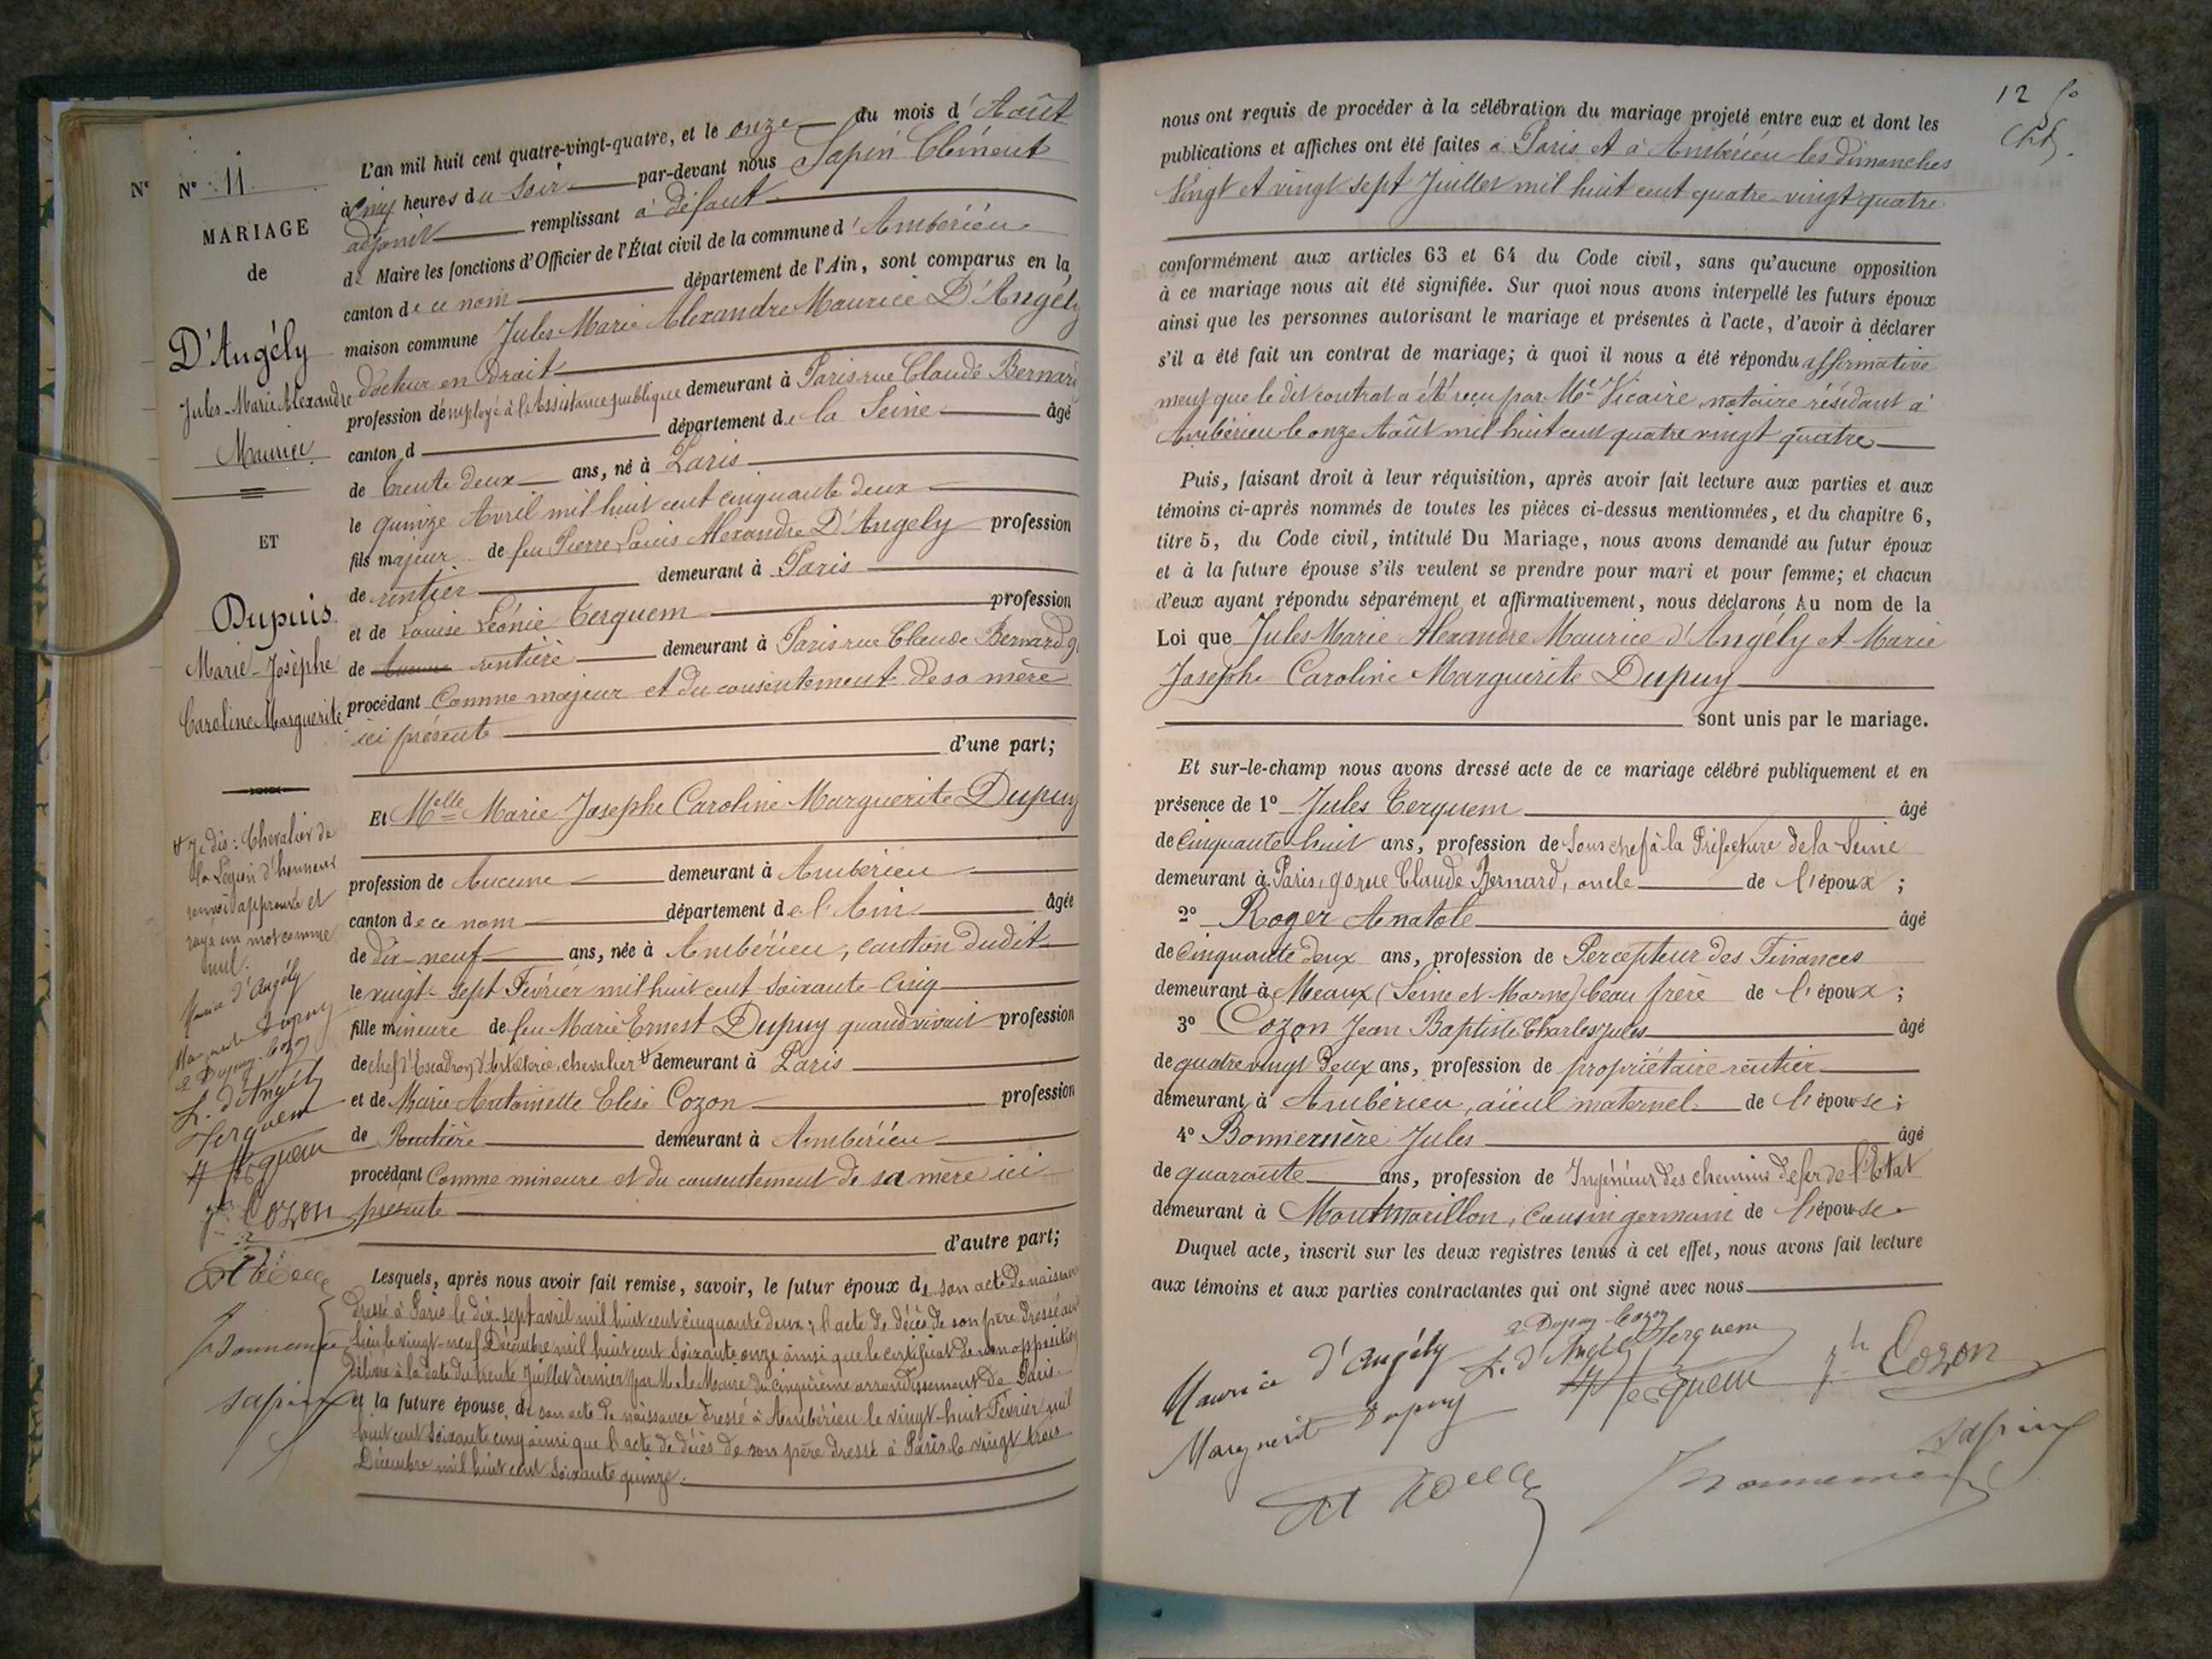 Nº
Nº 11
MARIAGE
de
D'Angély
Jules-Marie Alexandre
Maurice
ET
Dupuis
Marie-Josèphe
Caroline Marguerite
Je dis: Chevalier de
la Légion d'honneur
renvoi approuvé et
rayé un mot comme
nul.
Maurice d'Angély
Marguerite Dupuy
e Dupuy-Cozon
L. d'Angély
Terquem
Terquem
Cozon
Sapin
L'an mil huit cent quatre-vingt-quatre, et le onze du mois d'Août
à cinq heures du Soir par-devant nous Sapin Clément
adjoint remplissant à défaut
de Maire les fonctions d'Officier de l'État civil de la commune d'Ambérieu
canton de ce nom département de l'Ain, sont comparus en la
maison commune Jules Marie Alexandre Maurice D'Angély
docteur en Droit
profession d'employé à l'Assistance publique demeurant à Paris rue Claude Bernard
canton d département de la Seine âgé
de trente deux ans, né à Paris
le quinze Avril mil huit cent cinquante deux
fils majeur de feu Pierre Louis Alexandre D'Angely profession
de rentier demeurant à Paris
et de Louise Léonie Terquem profession
de rentière demeurant à Paris rue Claude Bernard
procédant Comme majeur et du consentement de sa mère
ici présente
d'une part;
Et Melle Marie Josephe Caroline Marguerite Dupuy
profession de Aucune demeurant à Ambérieu
canton de ce nom département de l'Ain âgée
de dix-neuf ans, née à Ambérieu, canton dudit
le vingt-sept Février mil huit cent soixante-cinq
fille mineure de feu Marie Ernest Dupuy quand vivait profession
de chef d'Escadron d'Artillerie, chevalier demeurant à Paris
et de Marie Antoinette Elise Cozon profession
de Rentière demeurant à Ambérieu
procédant Comme mineure et du consentement de sa mère ici
présente
d'autre part;
Lesquels, après nous avoir fait remise, savoir, le futur époux de son acte de naissance
dressé à Paris le dix-sept avril mil huit cent cinquante deux; l'acte de décès de son père dressé au
lieu le vingt-neuf Décembre mil huit cent soixante onze ainsi que le certificat de non opposition
délivré à la date du trente Juillet dernier par M. le Maire du cinquième arrondissement de Paris
et la future épouse, de son acte de naissance dressé à Ambérieu le vingt-huit Février mil
huit cent soixante cinq ainsi que l'acte de décès de son père dressé à Paris le vingt trois
Décembre mil huit cent soixante quinze.
12
nous ont requis de procéder à la célébration du mariage projeté entre eux et dont les
publications et affiches ont été faites à Paris et à Ambérieu les dimanches
Vingt et vingt sept Juillet mil huit cent quatre-vingt quatre
conformément aux articles 63 et 64 du Code civil, sans qu'aucune opposition
à ce mariage nous ait été signifiée. Sur quoi nous avons interpellé les futurs époux
ainsi que les personnes autorisant le mariage et présentes à l'acte, d'avoir à déclarer
s'il a été fait un contrat de mariage; à quoi il nous a été répondu affirmative
ment que le dit contrat a été reçu par Me Vicaire, notaire résidant à
Ambérieu le onze Août mil huit cent quatre vingt quatre
Puis, faisant droit à leur réquisition, après avoir fait lecture aux parties et aux
témoins ci-après nommés de toutes les pièces ci-dessus mentionnées, et du chapitre 6,
titre 5, du Code civil, intitulé Du Mariage, nous avons demandé au futur époux
et à la future épouse s'ils veulent se prendre pour mari et pour femme; et chacun
d'eux ayant répondu séparément et affirmativement, nous déclarons Au nom de la
Loi que Jules Marie Alexandre Maurice d'Angély et Marie
Josephe Caroline Marguerite Dupuy
sont unis par le mariage.
Et sur-le-champ nous avons dressé acte de ce mariage célébré publiquement et en
présence de 1º Jules Terquem âgé
de Cinquante huit ans, profession de Sous chef à la Préfecture de la Seine
demeurant à Paris, 90 rue Claude Bernard, oncle de l'époux;
2º Roger Anatole âgé
de Cinquante deux ans, profession de Percepteur des Finances
demeurant à Meaux (Seine et Marne) beau frère de l'époux;
3º Cozon Jean Baptiste Charles Jules âgé
de quatre vingt deux ans, profession de propriétaire rentier
demeurant à Ambérieu, aïeul maternel de l'épouse;
4º Bonnemère Jules âgé
de quarante ans, profession de Ingénieur des chemins de fer de l'Etat
demeurant à Montmorillon, Cousin germain de l'épouse.
Duquel acte, inscrit sur les deux registres tenus à cet effet, nous avons fait lecture
aux témoins et aux parties contractantes qui ont signé avec nous
e Dupuy-Cozon
Maurice d'Angély L. d'Angély Terquem
Terquem Cozon
Marguerite Dupuy
Sapin
Bonnemère